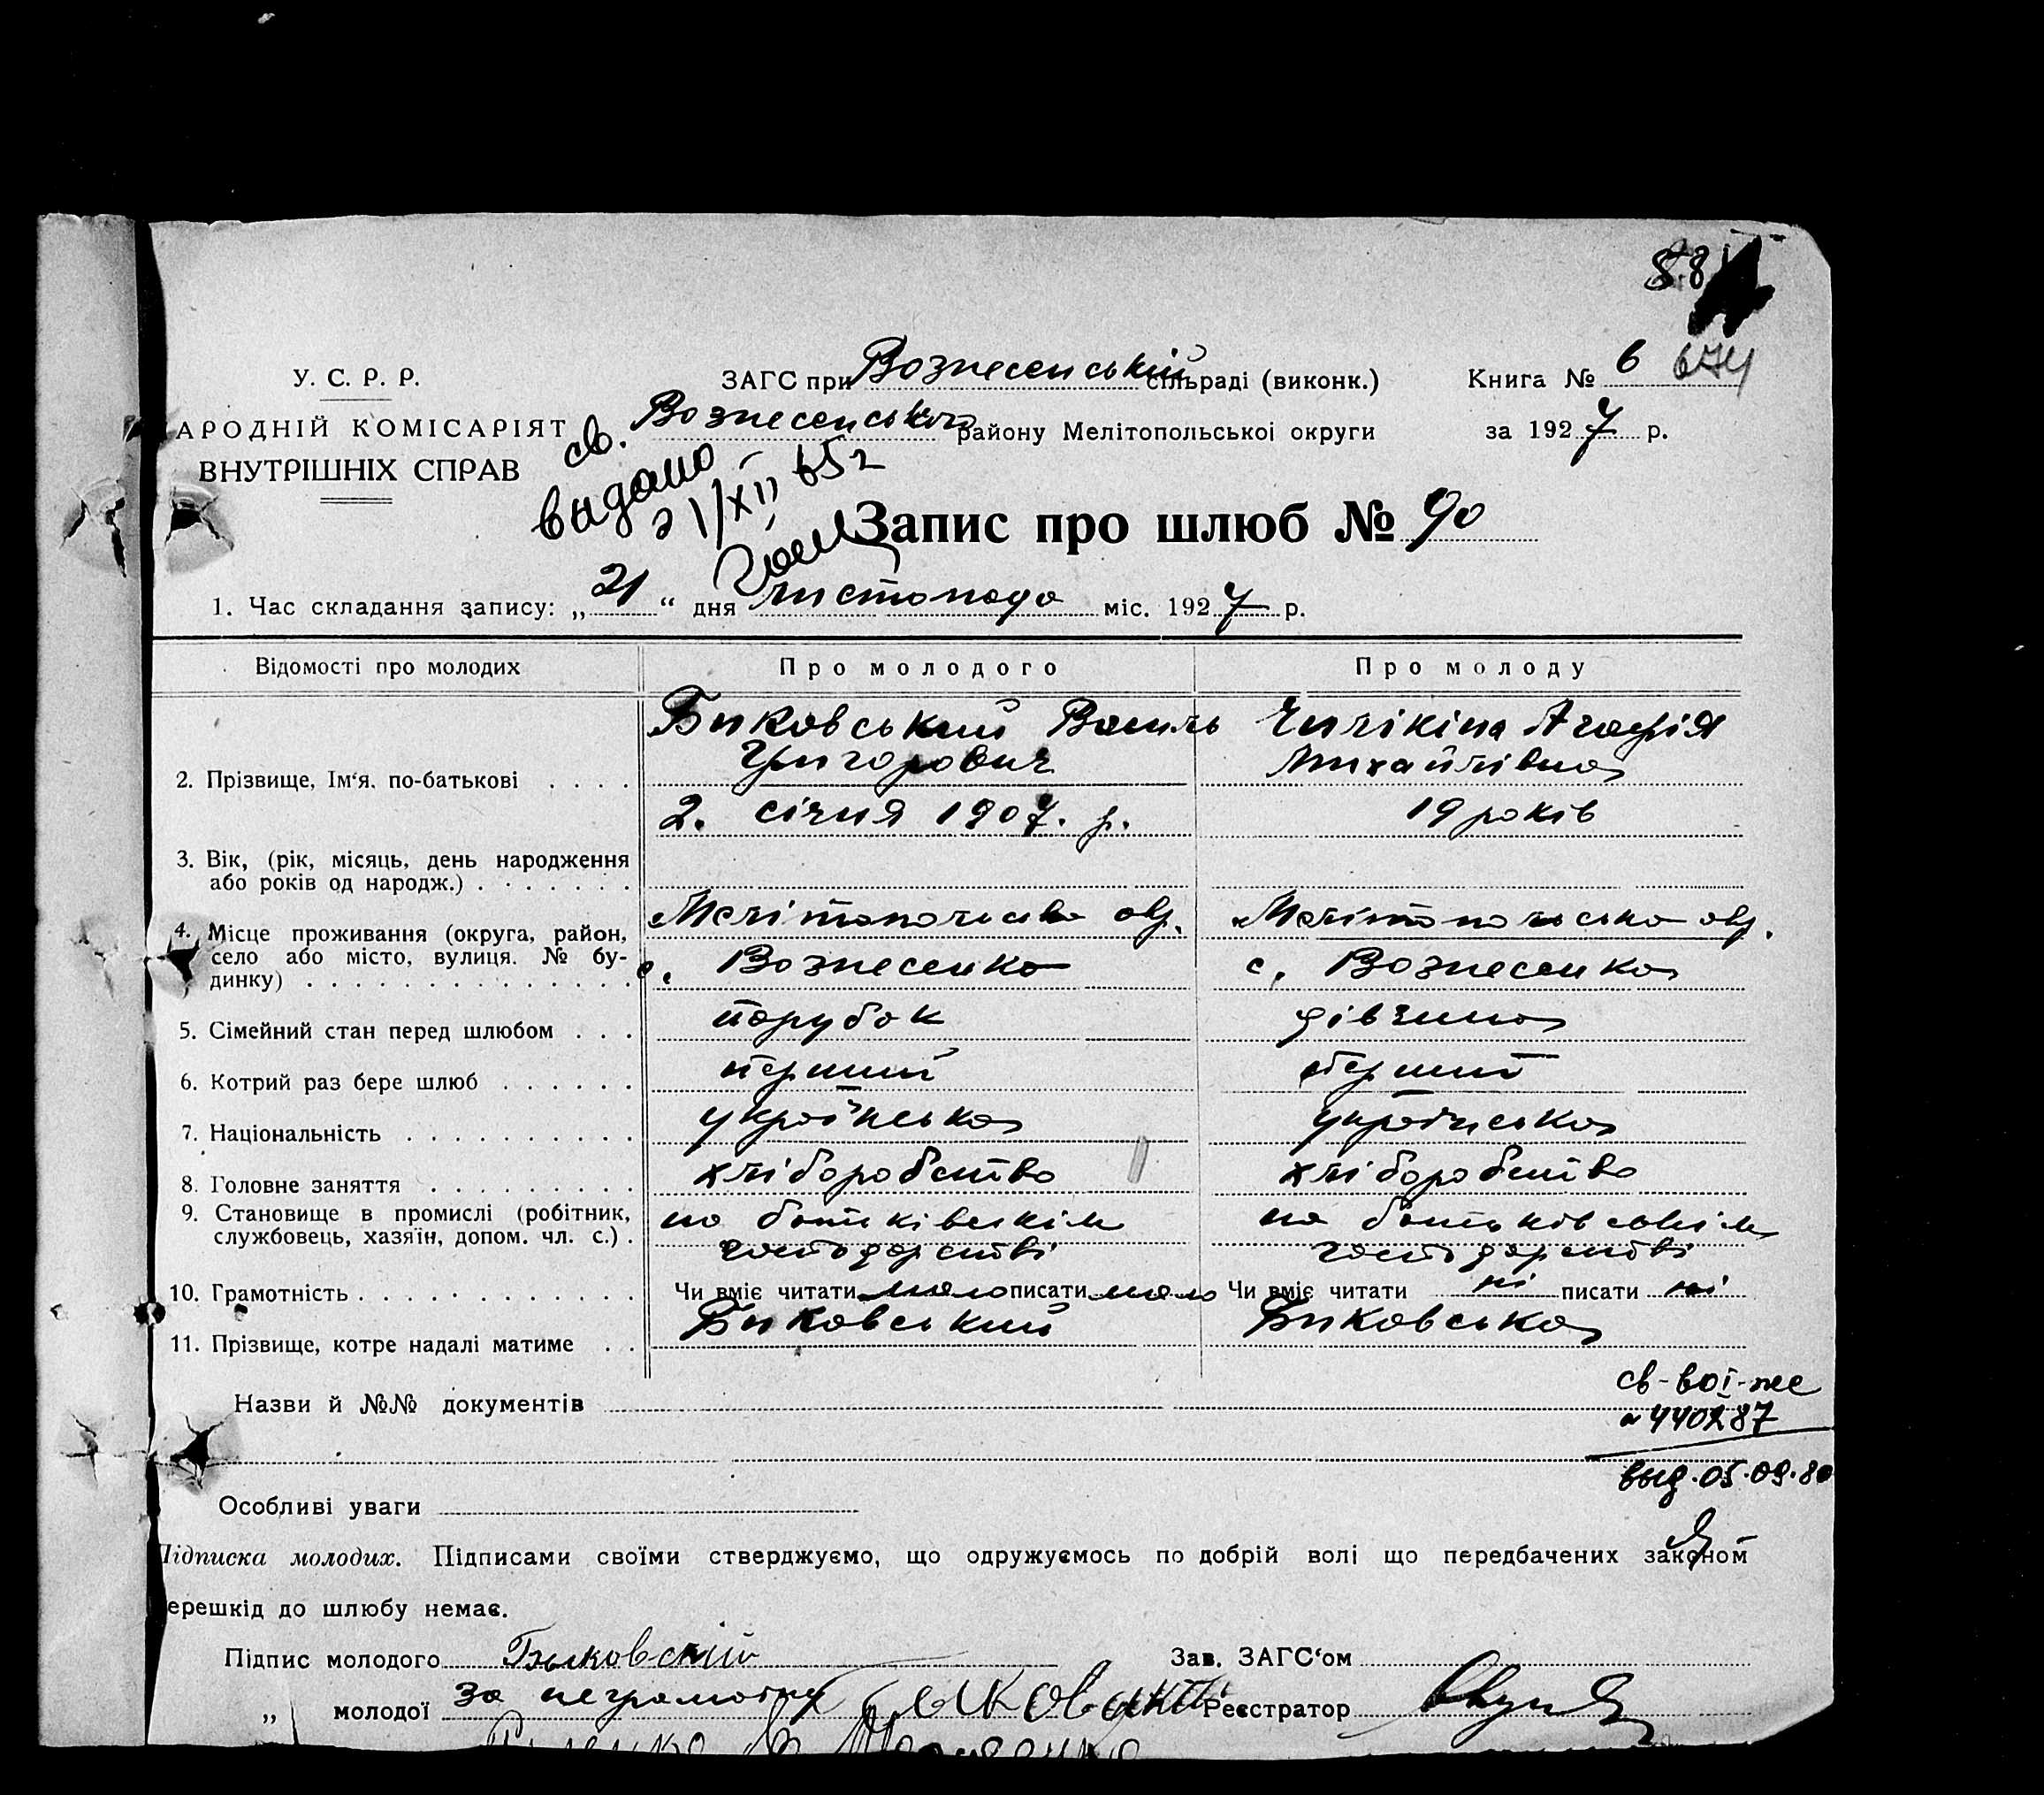 88
У. С. Р. Р.
ЗАГС при Вознесенській сільраді (виконк.)
Книга № 6 674
АРОДНІЙ КОМІСАРІЯТ
Вознесенського району Мелітопольської округи
за 1927 р.
ВНУТРІШНІХ СПРАВ
св.
выдано
21/XII 65 г
Запис про шлюб № 90
1. Час складання запису: „21“ дня листопада міс. 1927 р.
Відомості про молодих
Про молодого
Про молоду
Биковський Василь
Чилікіна Агафія
2. Прізвище, Ім‘я, по-батькові . . . .
Григорович
Михайлівна
2. січня 1907. р.
19 років
3. Вік, (рік, місяць, день народження
або років од народж.) . . . . . . .
4. Місце проживання (округа, район,
село або місто, вулиця. № бу-
динку) . . . . . . . . . . . . . .
Мелітопольська окр.
Мелітопольська окр.
с. Вознесенка
с. Вознесенка
5. Сімейний стан перед шлюбом . . .
парубок
дівчина
6. Котрий раз бере шлюб . . . . . .
перший
перший
7. Національність . . . . . . . . . .
українська
українська
8. Головне заняття . . . . . . . . .
хліборобство
хліборобство
9. Становище в промислі (робітник,
службовець, хазяїн, допом. чл. с.) .
на батьківскім
господарстві
на батьківськім
господарстві
10. Грамотність . . . . . . . . . . . .
Чи вміє читати мало писати мало
Чи вміє читати ні писати ні
11. Прізвище, котре надалі матиме . .
Биковський
Биковська
Назви й №№ документів
св-во I-же
№ 440287
выд. 05.09.80
Особливі уваги
Підписка молодих. Підписами своїми стверджуємо, що одружуємось по добрій волі що передбачених законом
ерешкід до шлюбу немає.
Підпис молодого Быковский
Зав. ЗАГС‘ом
„ молодої за неграмотну
Реєстратор